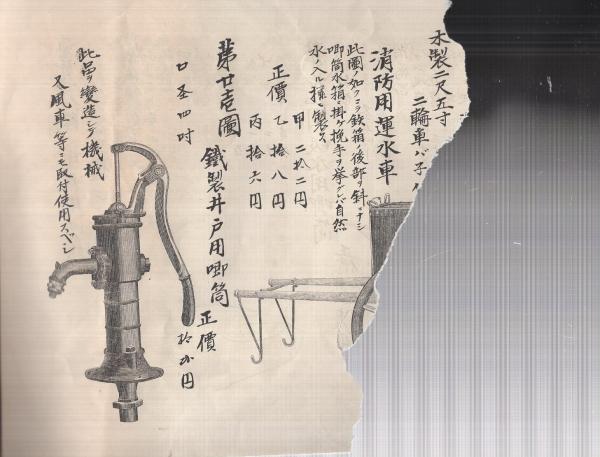 木製二尺五寸
二輪車バ子
消防用運水車
此圖ノ如クニテ鉄箱ノ後部ヲ斜ニナシ
喞筒水箱ニ掛ケ挽手ヲ挙グレバ自然
水ノ入ル様ニ製ス
甲 二拾二円
正價 乙 拾八円
丙 拾六円
第廿壱圖 鐵製井戸用喞筒
正價
口至四吋
此品ヲ變造シテ機械
又風車等ニモ取付使用スベシ